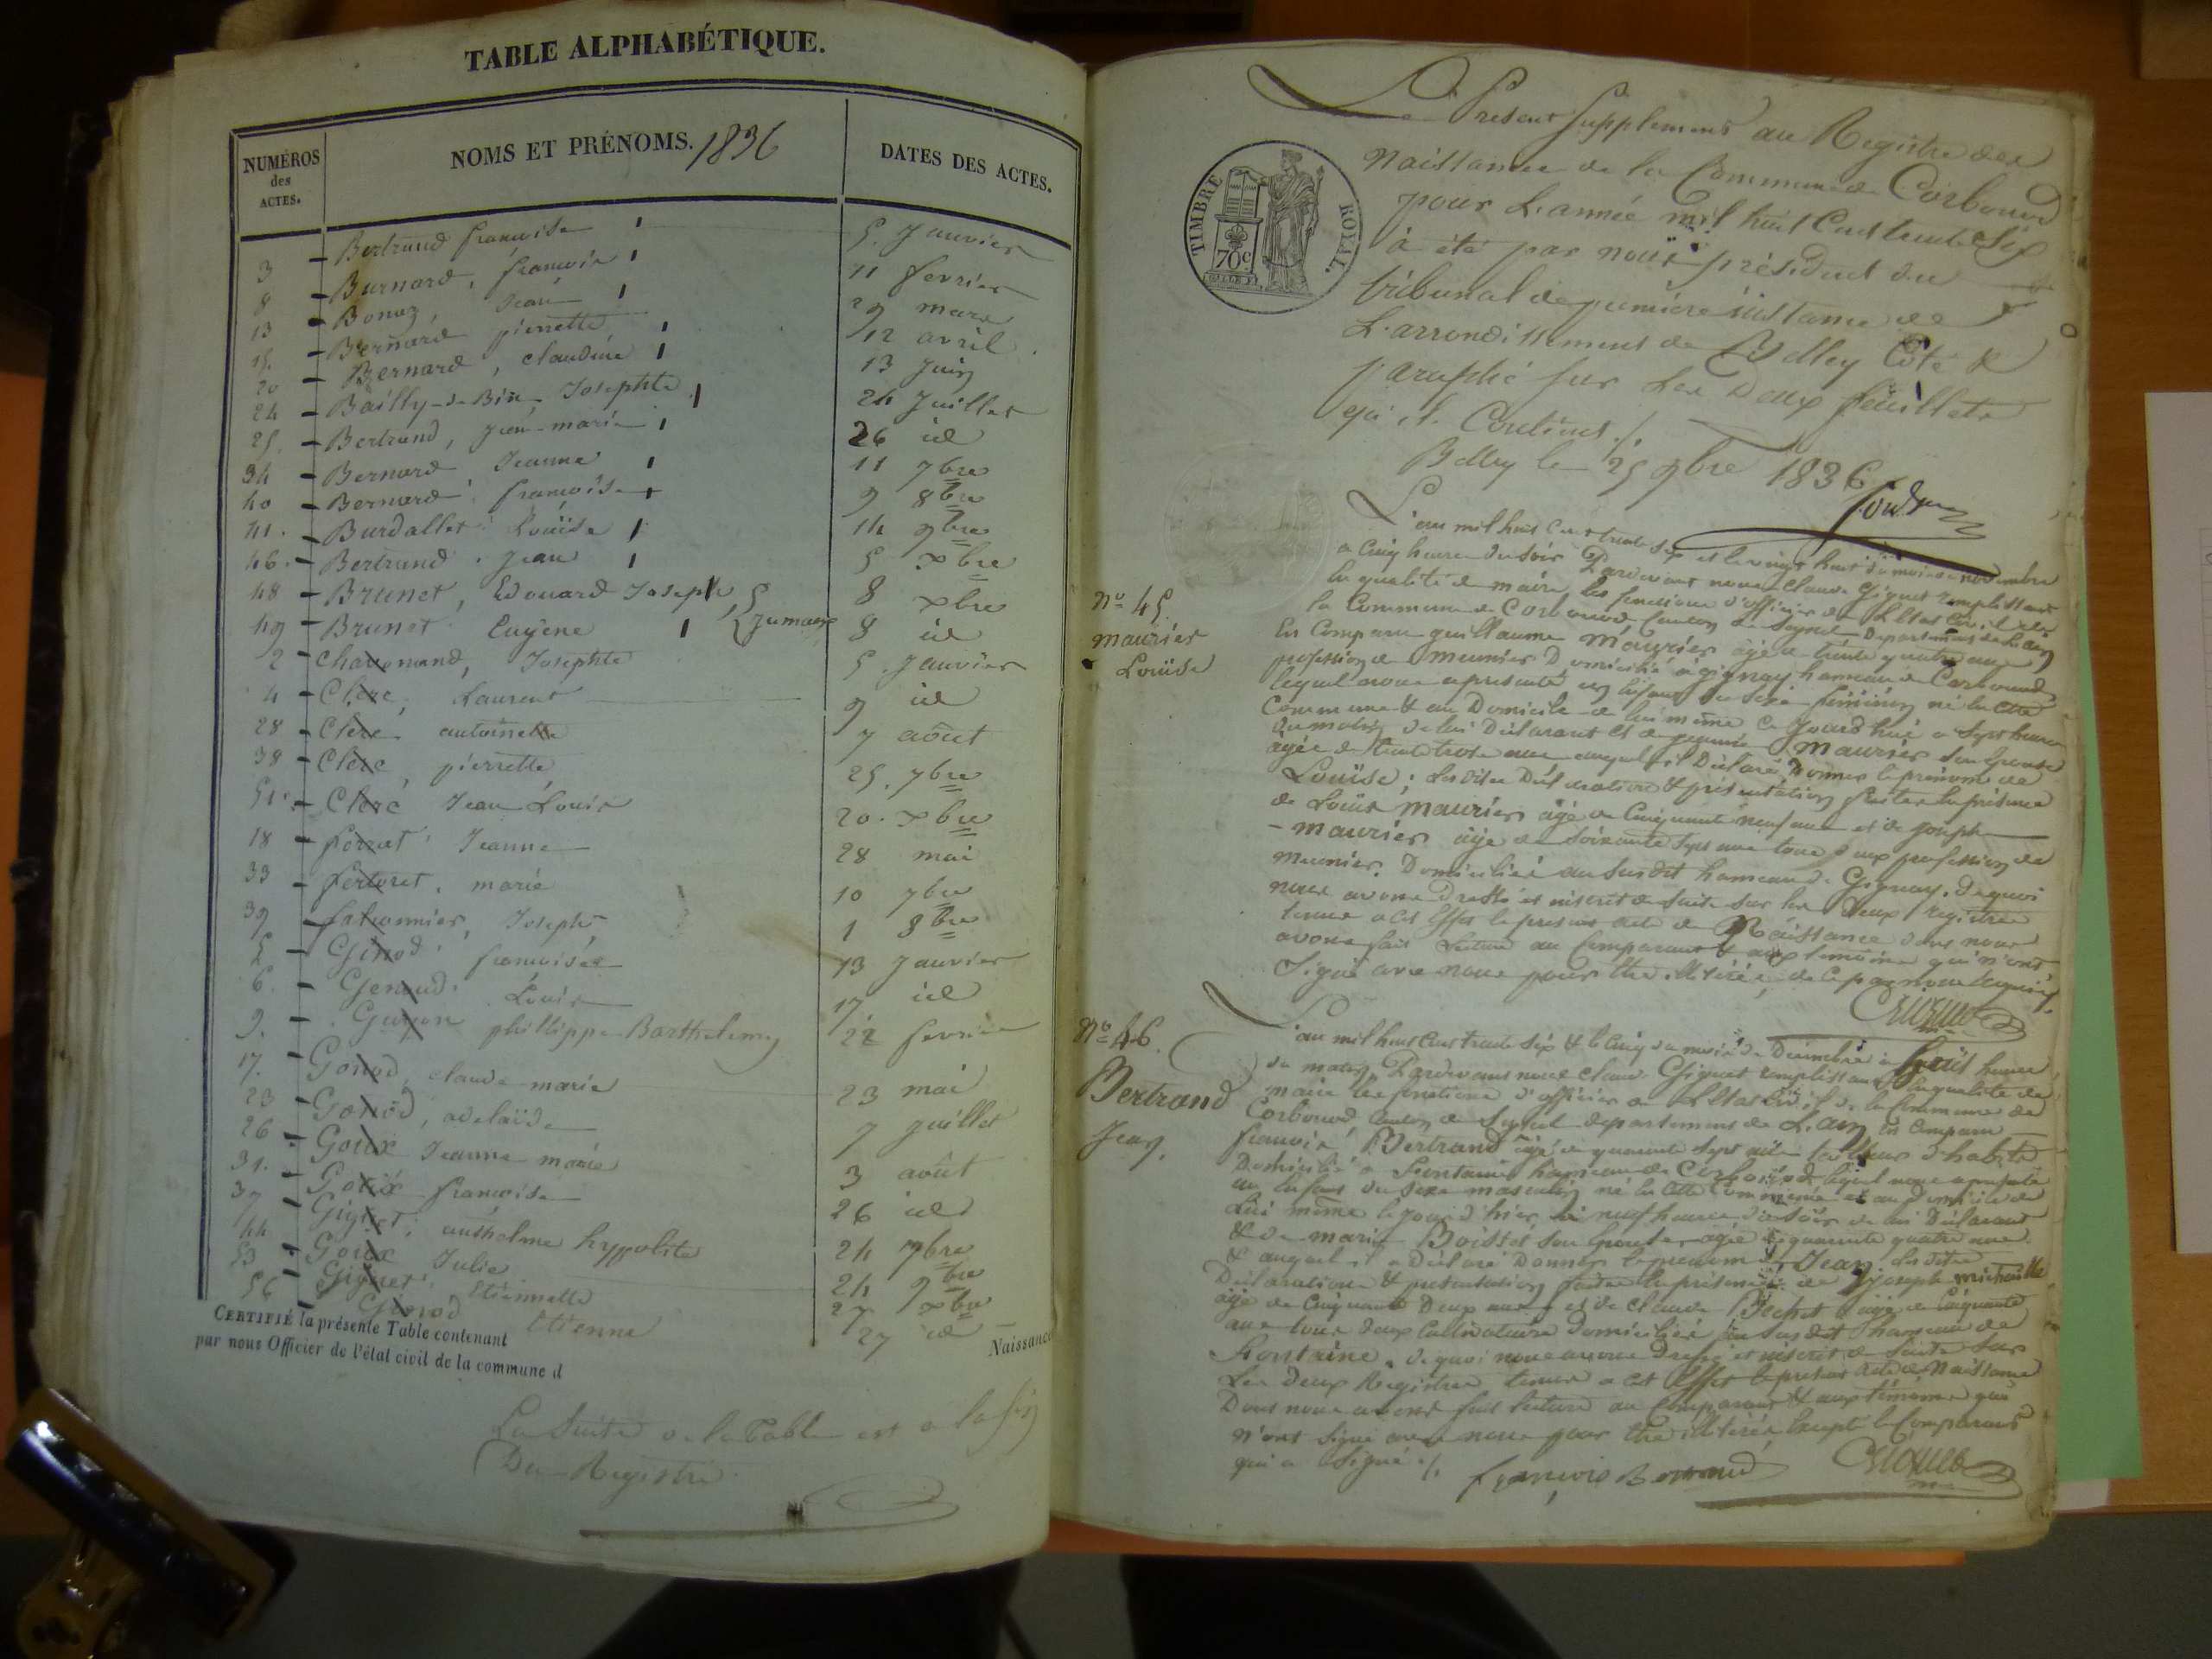 TABLE ALPHABÉTIQUE.
NUMÉROS des ACTES. NOMS ET PRÉNOMS. 1836 DATES DES ACTES.
3 Bertrand françoise 5. Janvier
8 Burnard, françois 11 fevrier
13 Bonaz, Jean 29 mars
15. Bernard pierrette 12 avril
20 Bernard, claudine 13 Juin
24 Bailly-de-Bin Josephte 24 Juillet
25. Bertrand, Jean-marie 26 id
34 Bernard Jeanne 11 7bre
40 Bernard françoise 9 8bre
41. Burdallet Louise 14 9bre
46. Bertrand Jean 5 xbre
48 Brunet, Edouard Joseph 8 xbre
49 Brunet Eugène Jumaux 8 id
2 Chavenand, Josephte 5. Janvier
4 Clerc, Laurent 9 id
28 Clerc antoinette 7 août
38 Clerc, pierrette 25. 7bre
51. Clerc Jean Louis 20. xbre
18 ferrat Jeanne 28 mai
33 fertoret, marie 10 7bre
39 falconnier, Joseph 1 8bre
5 Ginod françoise 13 Janvier
6. Genoud Louis 17 id
9. Guyon phillippe Barthelemy 22 fevrier
17. Gonod, claude marie 23 mai
23 Gonod, adelaïde 7 Juillet
26 Goux Jeanne marie 3 août
31. Goux françoise 26 id
37 Giguet, anthelme hyppolite 24 7bre
44 Goux Julie 24 9bre
53 Giguet, Etiennette 27 xbre
56 Ginod Etienne 27 id
CERTIFIÉ la présente Table contenant Naissance
par nous Officier de l'état civil de la commune d
La Suite de la Table est a la fin
Du Registre
Présent Supplement au Registre des
TIMBRE ROYAL.
70c
Naissances de la Commune de Corbonod
pour L'année mil huit Cent trente Six
à été par nous président du
tribunal de première instance de
L'arrondissement de Belley Coté &
paraphé sur les Deux feuillets
qu'il Contient ./.
Belley le 25 9bre 1836
L'an mil huit Cent trente six et le vingt huit du mois de novembre
a Cinq heures du soir Pardevant nous Claude Giguet remplissant
En qualité de maire les fonctions d'officier de L'Etat Civil de
No 45.
maurier
Louise
la Commune de Corbonod Canton de Seyssel Departement de L'ain
Est Comparu guillaume Maurier âgé de trente quatre ans
profession de meunier Domicilié à gignay hameau de Corbonod
lequel nous a presenté un Enfant du sexe féminin né En Cette
Commune & au Domicile de lui même Ce Jourd'hui a Sept heures
du matin de lui Déclarant et de maurier Son Epouse
âgée de trente trois ans auquel il a Déclaré Donner le prénom de
Louise; Les dites Déclaration & présentation faites En présence
de Louis maurier âgé de Cinquante neuf ans et de Joseph
maurier âgé de Soixante Sept ans tous Deux profession de
meunier. Domiciliés au Susdit hameau de Gignay. de quoi
nous avons Dressé et inscrit de Suite sur les Deux registres
tenus a Cet Effet le present acte de Naissance Dont nous
avons fait Lecture au Comparant & aux temoins qui n'ont
Signé avec nous pour Etre illitérés, de Ce par nous Requis ./.
Giguet
No 46.
Bertrand
Jean.
L'an mil huit Cent trente Six & le Cinq du mois de Décembre à huit heures
du matin Pardevant nous Claude Giguet remplissant En qualité de
maire les fonctions d'officier de L'Etat Civil de la Commune de
Corbonod Canton de Seyssel departement de L'ain Est Comparu
françois Bertrand âgé de quarante Sept ans tailleur d'habits
Domicilié a Fontaine hameau de Corbonod lequel nous a presenté
un Enfant du Sexe masculin né En Cette Commune et au Domicile de
Lui même le jour d'hier à neuf heures du soir de lui Déclarant
& de marie Boisset Son Epouse âgée de quarante quatre ans
& auquel il a Déclaré Donner le prenom de Jean Les dites
Déclaration & présentation faites En présence de Joseph
âgé de Cinquante Deux ans et de Claude Bechet âgé de Cinquante
ans tous Deux Cultivateurs Domiciliés au Susdit hameau de
Fontaine. De quoi nous avons Dressé et inscrit de Suite Sur
Les Deux Registres tenus a Cet Effet le present acte de Naissance
Dont nous avons fait lecture au Comparant & aux témoins qui
n'ont Signé avec nous pour Etre illitérés Excepté le Comparant
qui a Signé ./. françois Bertrand Giguet